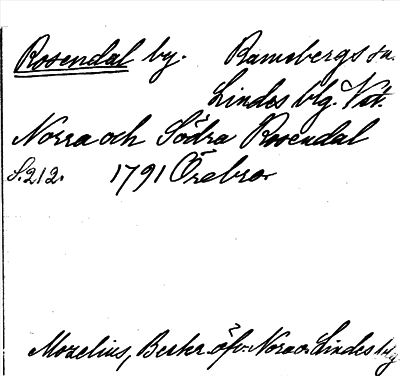 Rosendal by. Ramsbergs sn.
Lindes blg. Vst.
Norra och Södra Rosendal
S. 212. 1791 Örebro
Mozelius, Beskr. öfv. Nora o. Lindes blg